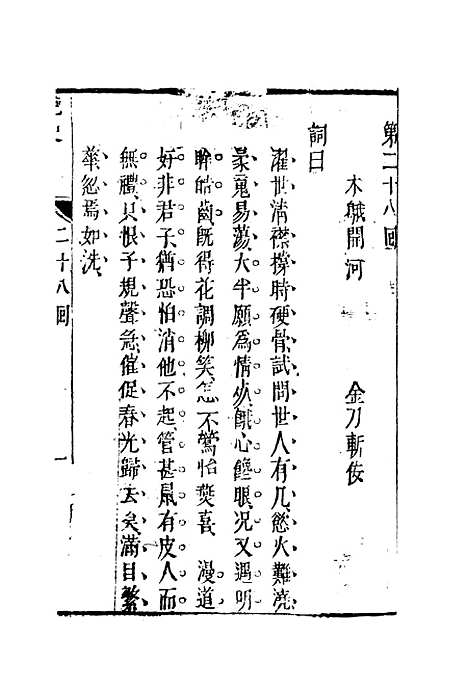 第二十八回
木鵝開河　金刀斬佞
詞曰
濯世清襟撐時硬骨試問世人有几慾火難澆
豪竟易蕩大半願為情死餓心饞眼况又遇明
眸皓齒既得花調柳笑怎不鶯怡燕喜　漫道
好非君子猶恐怕消他不起管甚鼠有皮人而
無禮只恨子規聲急催促春光歸去矣滿目繁
華忽焉如洗
史
二十八回
一